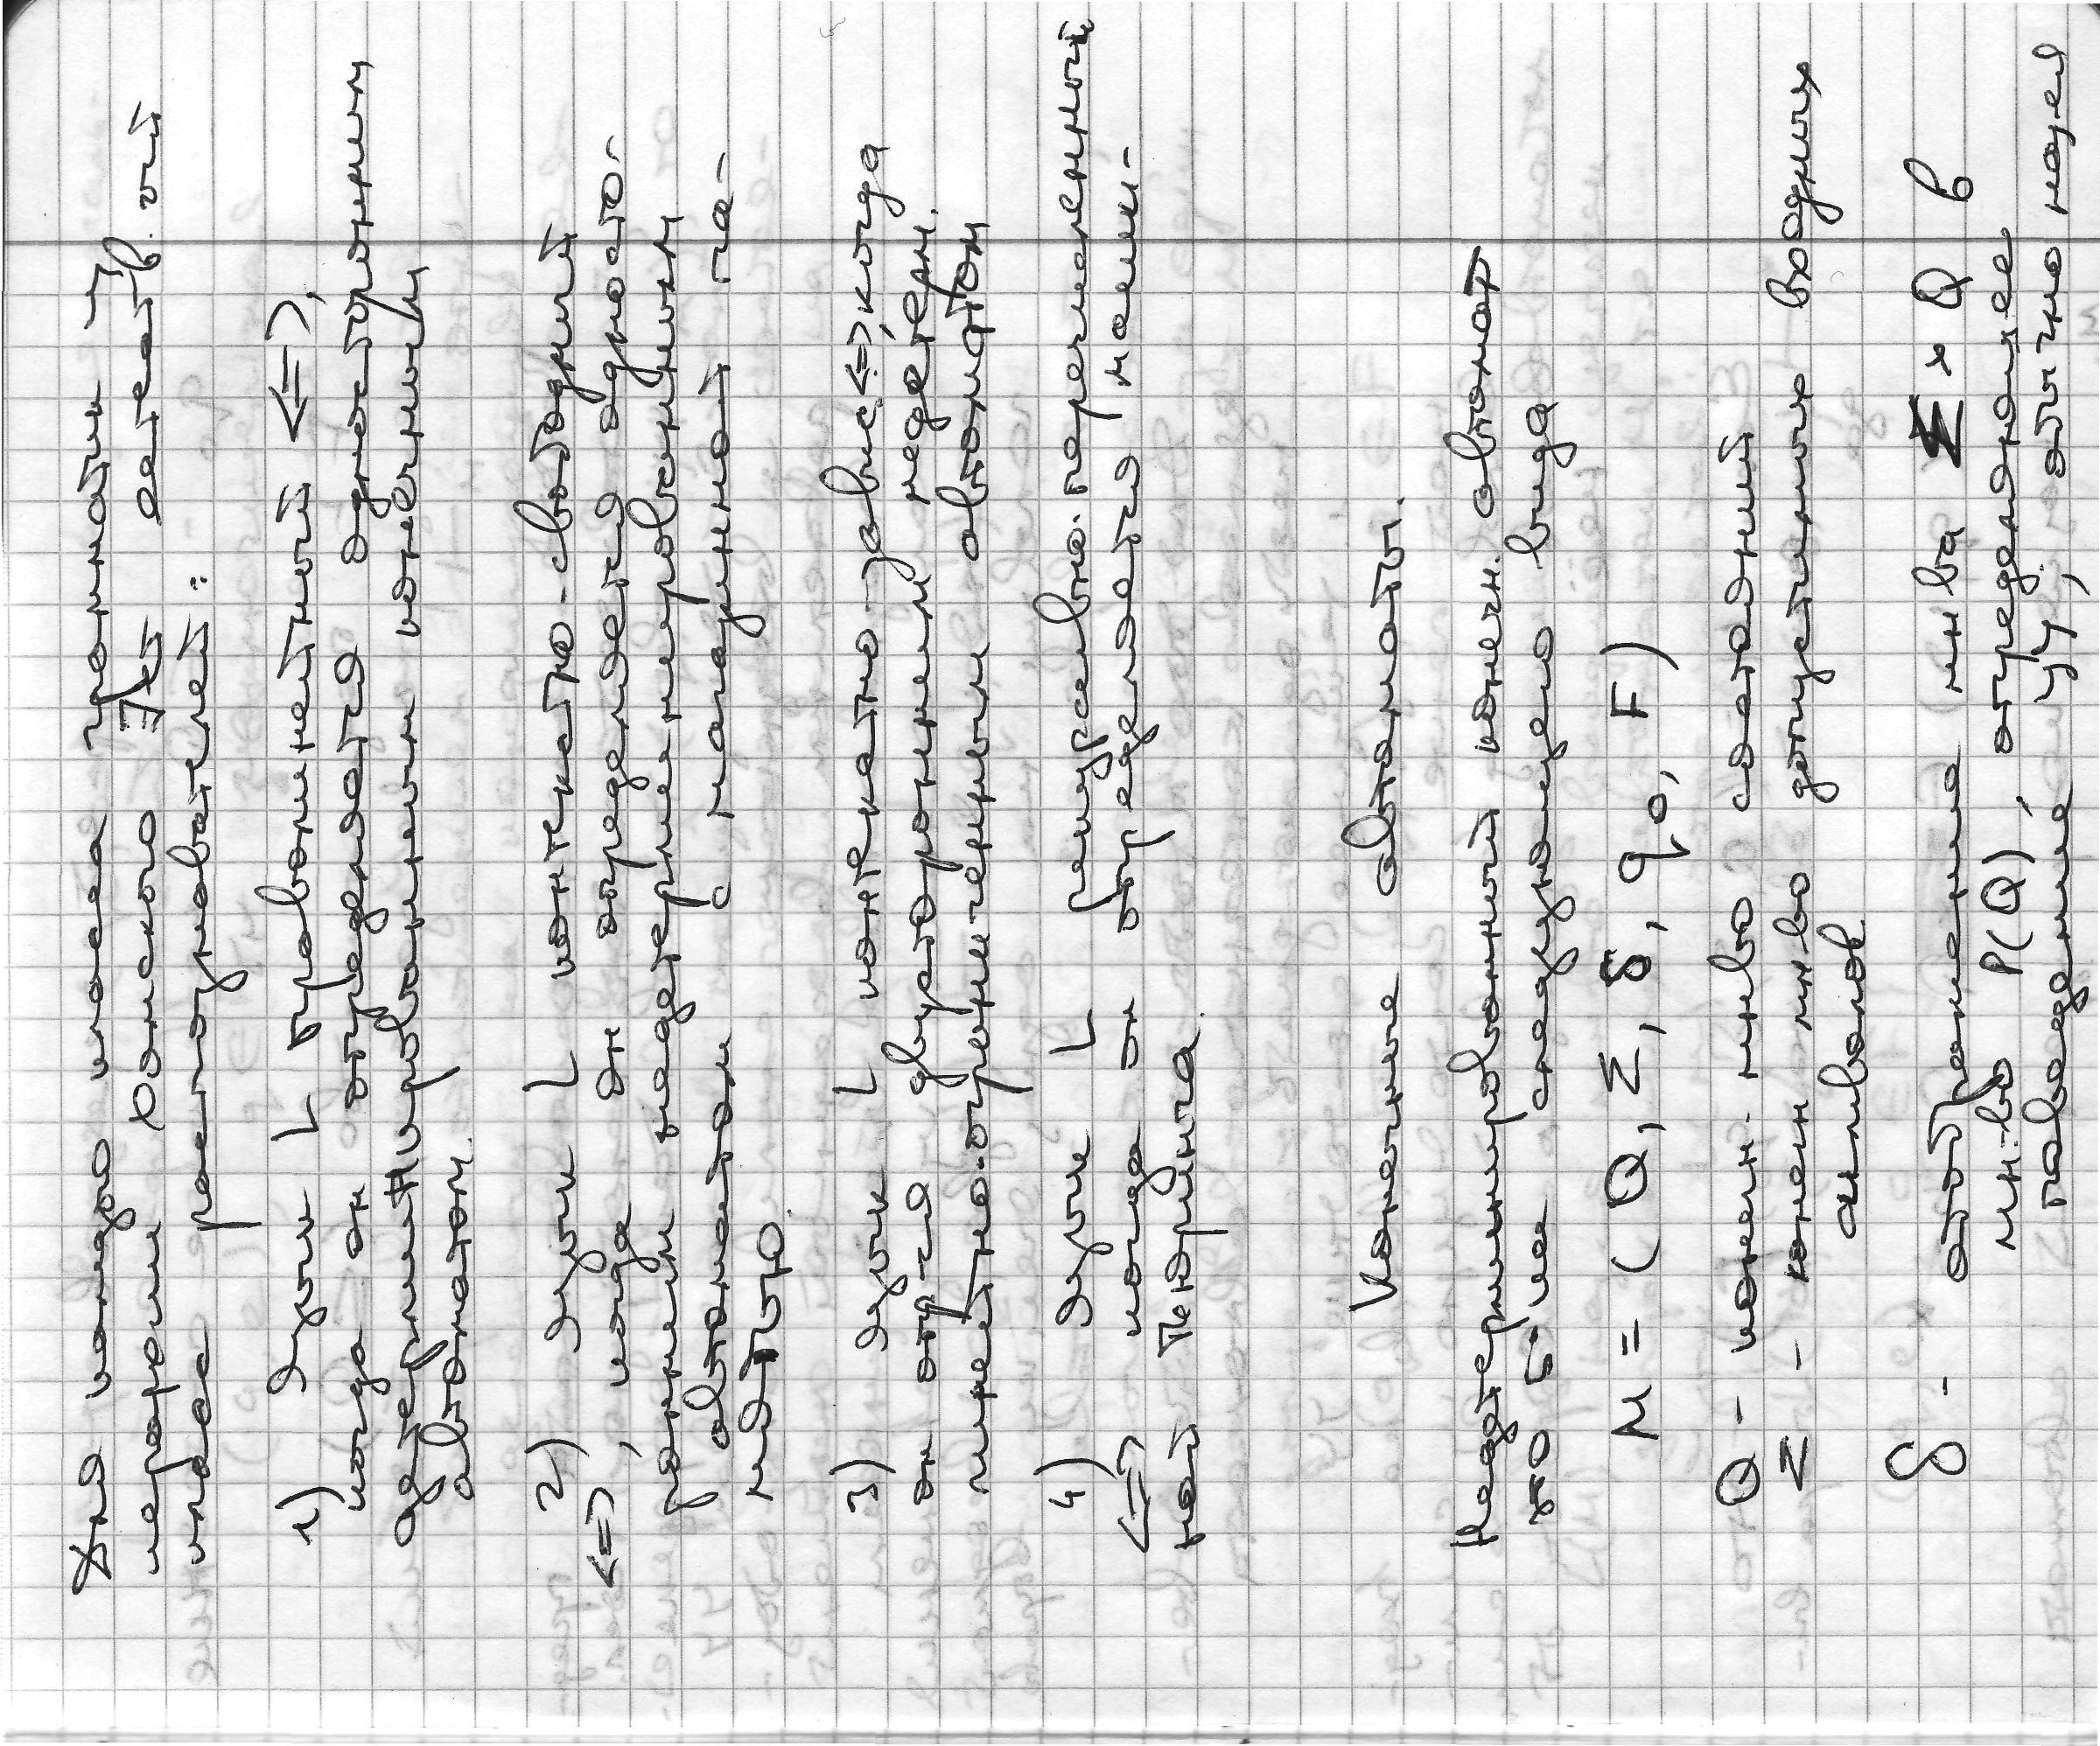 Для каждого класса грамматик из
иерархии Хомского ∃ет соответств. ий
класс распознавателей:
1) Язык L праволинейный <=>,
когда он определяется односторонним
детерминированным конечным
автоматом.
2) Язык L контекстно-свободный
<=>, когда он определяется односто-
ронним недетерминированным
автоматом с магазинной па-
мятью.
3) Язык L контекстно-завис. <=> когда
он опр-ся двусторонним недетерм.
линейно-ограниченным автоматом
4) Язык L рекурсивно-перечислимый
<=> когда он определяется маши-
ной Тьюринга.
Конечные автоматы.
Недетерминированный конечн. автомат
это 5-ка следующего вида
M = (Q, Σ, δ, q0, F)
Q - конечн. мн-во состояний
Σ - конечн мн-во допустимых входных
символов
δ - отображение мн-ва Σ x Q в
мн-во P(Q), определяющее
поведение УУ, обычно назыв